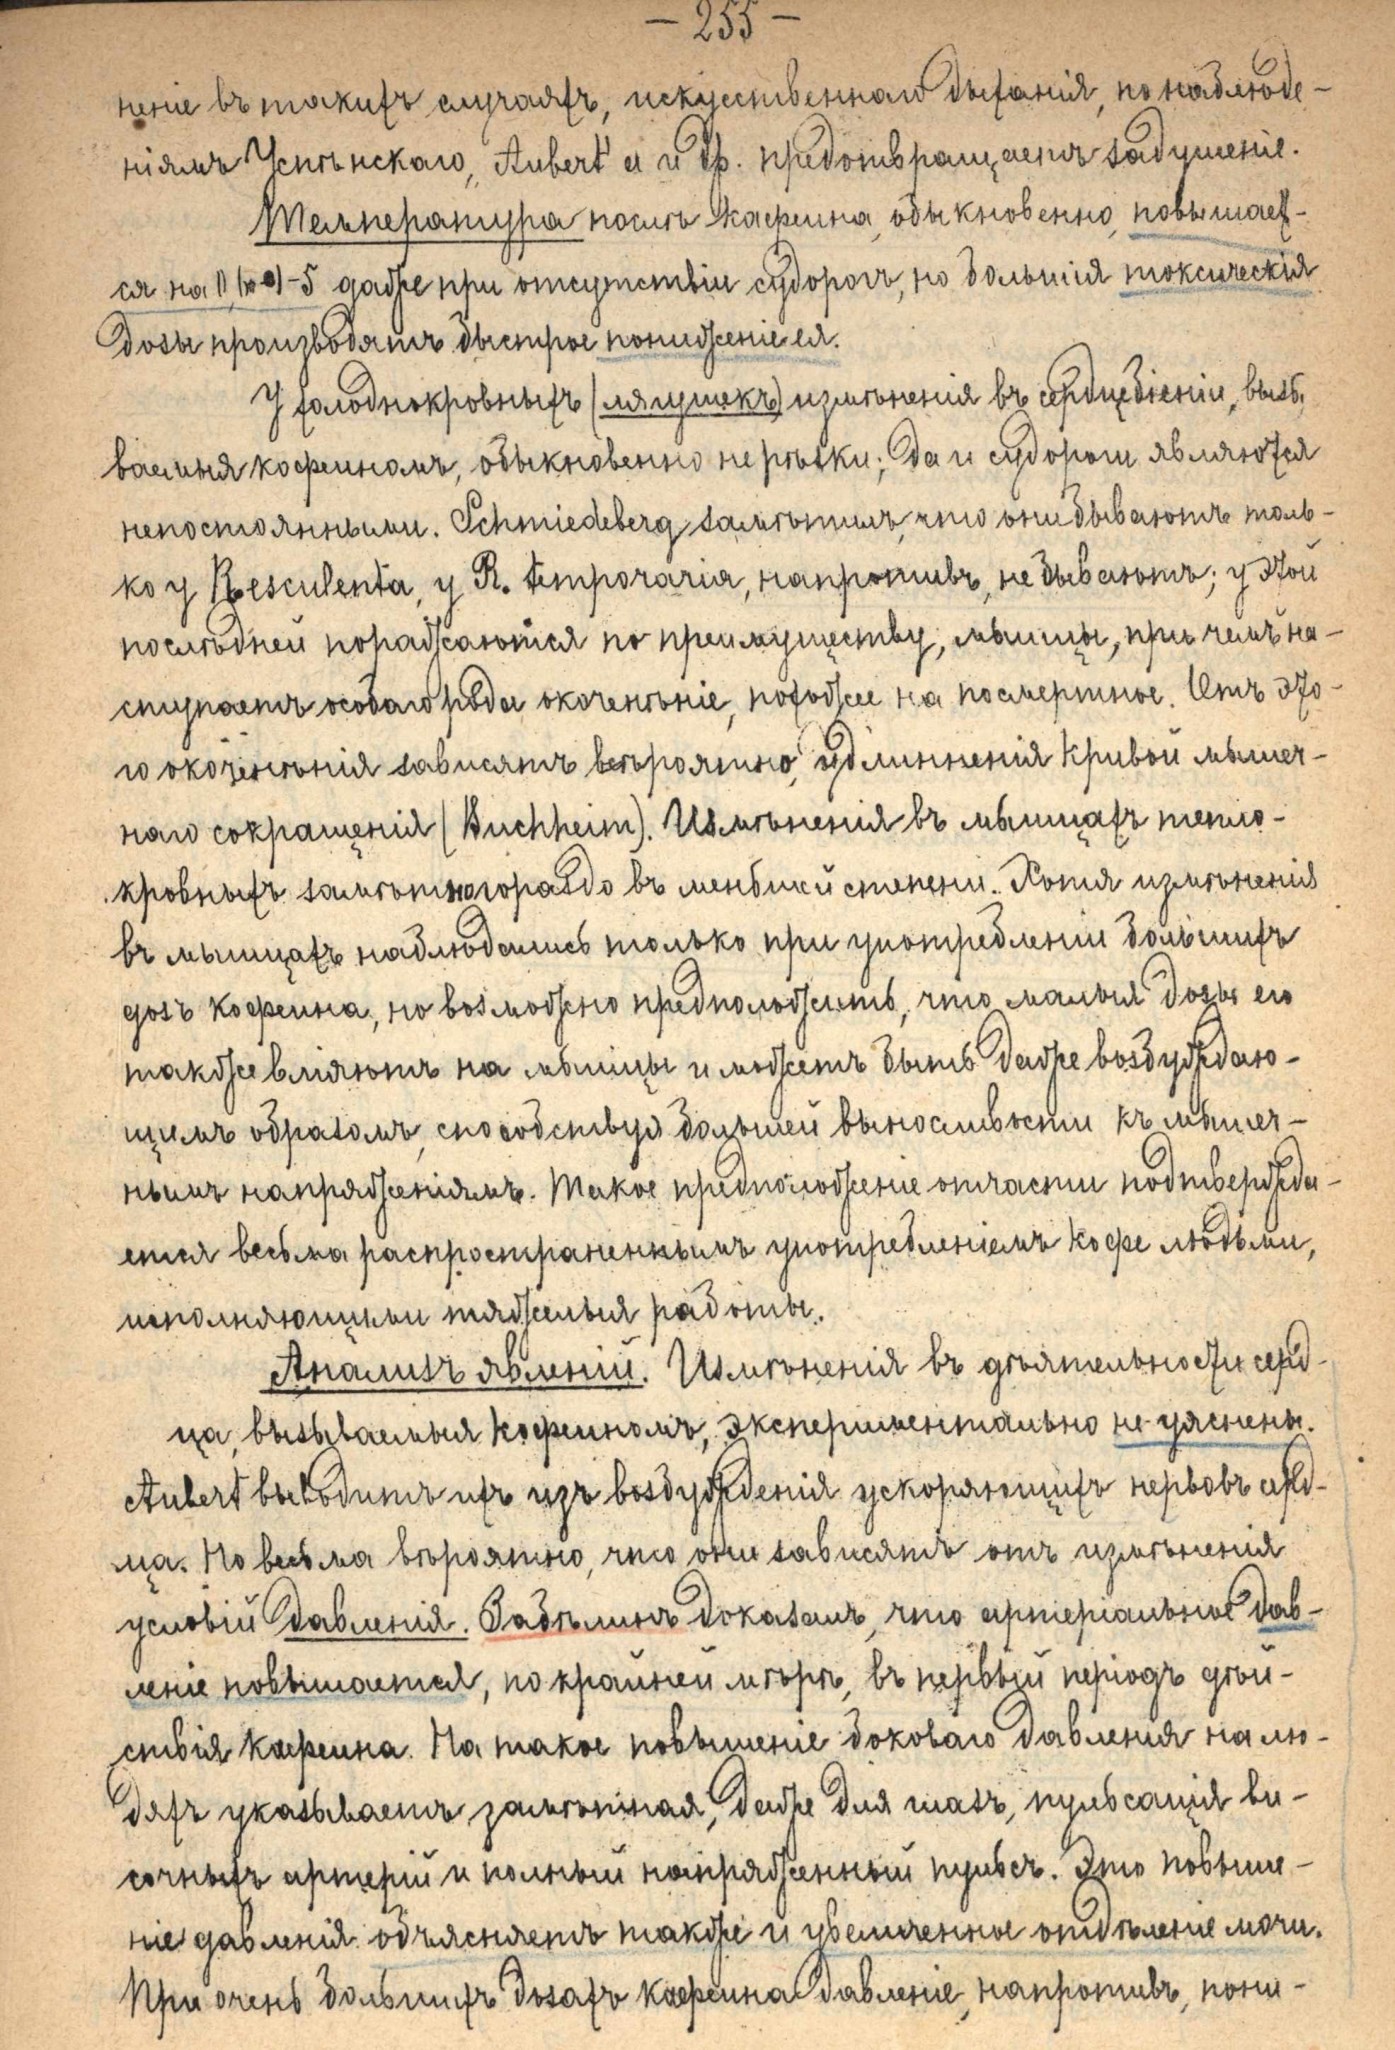 — 255 —
неніе въ такихъ случаяхъ, искусственнаго дыханія, по наблюде-
ніямъ Успѣнскаго, Aubert'а и др. предотвращаетъ задушеніе.
Температура послѣ кафеина, обыкновенно, повышает-
ся на -5 даже при отсутствіи судорогъ, но большія токсическія
дозы производятъ быстрое пониженіе ея.
У холоднокровныхъ (лягушекъ) измѣненія въ сердцебіеніи, вызы-
ваемыя кофеиномъ, обыкновенно не рѣзки; да и судороги являются
непостоянными. Schmiedeberg замѣтилъ, что они бываютъ толь-
ко у R. esculenta, у R. temporaria, напротивъ, не бываютъ; у этой
послѣдней поражаются по преимуществу, мышцы, при чемъ на-
ступаетъ особаго рода окоченѣніе, похожее на посмертное. Отъ это-
го окоченѣнія зависятъ вѣроятно, удлинненія кривой мышеч-
наго сокращенія (Buchheim). Измѣненія въ мышцахъ тепло-
кровныхъ замѣтно гораздо въ меньшей степени. Хотя измѣненія
въ мышцахъ наблюдались только при употребленіи большихъ
дозъ кофеина, но возможно предположить, что малыя дозы его
также вліяютъ на мышцы и можетъ быть даже возбуждаю-
щимъ образомъ, способствуя большей выносливости къ мышеч-
нымъ напряженіямъ. Такое предположеніе отчасти подтвержда-
ется весьма распространеннымъ употребленіемъ кофе людьми,
исполняющими тяжелыя работы.
Анализъ явленій. Измѣненія въ дѣятельности серд-
ца, вызываемыя кофеиномъ, экспериментально не уяснены.
Aubert выводитъ ихъ изъ возбужденія ускоряющихъ нервовъ серд-
ца. Но весьма вѣроятно, что они зависятъ отъ измѣненія
условій давленія. Забѣлинъ доказалъ, что артеріальное дав-
леніе повышается, по крайней мѣрѣ, въ первый періодъ дѣй-
ствія кафеина. На такое повышеніе боковаго давленія на лю-
дяхъ указываетъ замѣтная, даже для глазъ, пульсація ви-
сочныхъ артерій и полный напряженный пульсъ. Это повыше-
ніе давленія объясняетъ также и увеличенное отдѣленіе мочи.
При очень большихъ дозахъ кафеина давленіе, напротивъ, пони-